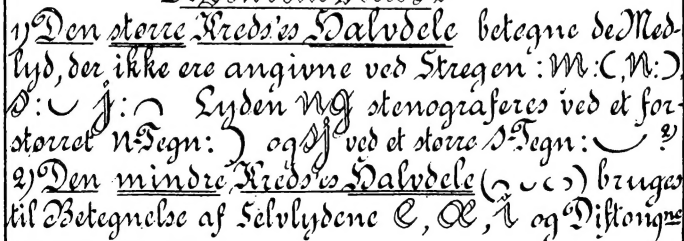 1) Den større Kreds'es Halvdele betegne de Med-
lyd, der ikke ere angivne ved Stregen: m: (, n: ),
s: ‿ j: ⁀ Lyden ng stenograferes ved et for-
størret n-Tegn: ) og sj ved et større s-Tegn: ‿ 2)
2) Den mindre Kreds'es Halvdele (⁀ ‿ ‹ ›) bruges
til Betegnelse af Selvlydene e, æ, i og Diftongne